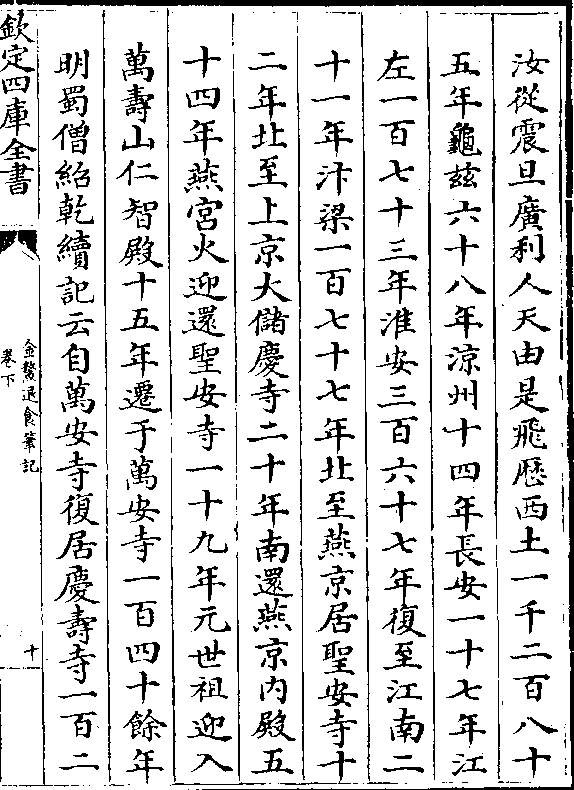 汝從震旦廣利人天由是飛歷西土一千二百八十
五年龜兹六十八年涼州十四年長安一十七年江
左一百七十三年淮安三百六十七年復至江南二
十一年汴梁一百七十七年北至燕京居聖安寺十
二年北至上京大儲慶寺二十年南還燕京内殿五
十四年燕宫火迎還聖安寺一十九年元世祖迎入
萬壽山仁智殿十五年遷于萬安寺一百四十餘年
明蜀僧紹乾續記云自萬安寺復居慶壽寺一百二
欽定四庫全書
金鰲退食筆記
卷下
十